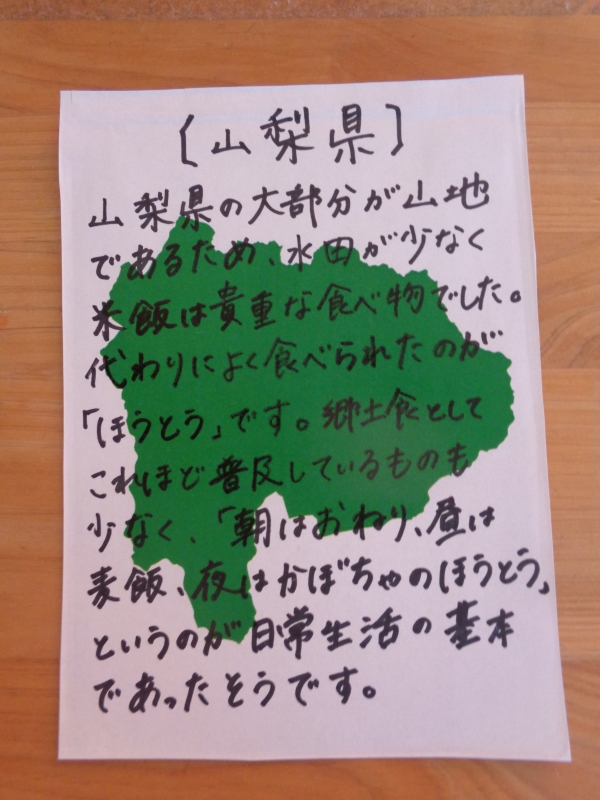 〔山梨県〕
山梨県の大部分が山地
であるため、水田が少なく
米飯は貴重な食べ物でした。
代わりによく食べられたのが
「ほうとう」です。郷土食として
これほど普及しているものも
少なく、「朝はおねり、昼は
麦飯、夜はかぼちゃのほうとう」
というのが日常生活の基本
であったそうです。